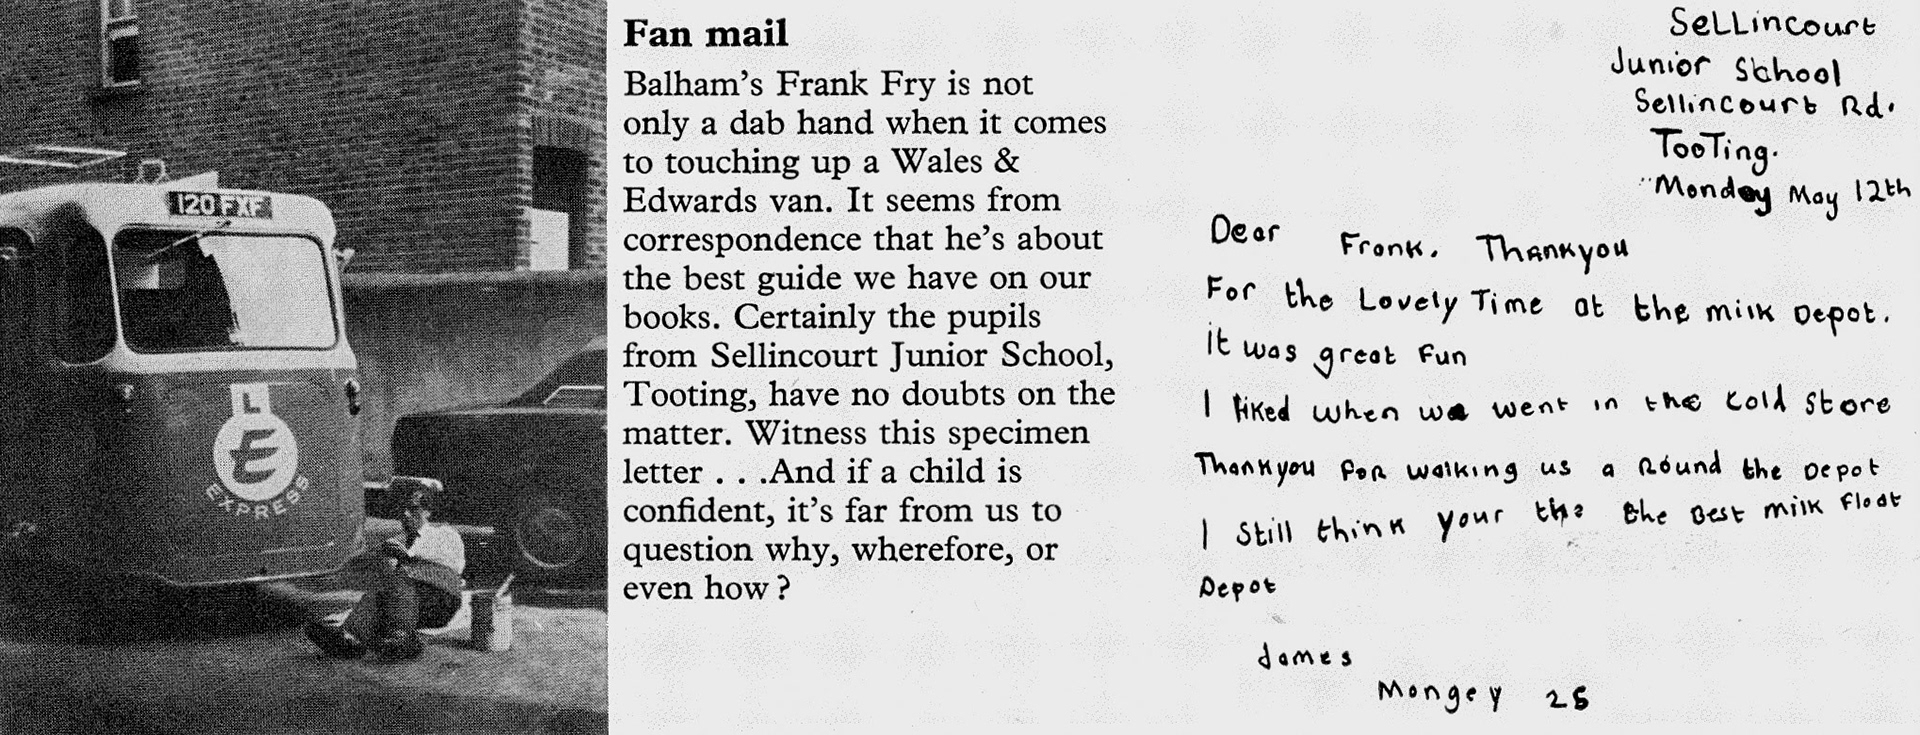 120 FXF
L
E
EXPRESS
Fan mail
Balham's Frank Fry is not
only a dab hand when it comes
to touching up a Wales &
Edwards van. It seems from
correspondence that he's about
the best guide we have on our
books. Certainly the pupils
from Sellincourt Junior School,
Tooting, have no doubts on the
matter. Witness this specimen
letter . . .And if a child is
confident, it's far from us to
question why, wherefore, or
even how?
SeLLincourt
Junior School
Sellincourt Rd.
TooTing.
Monday May 12th
Dear Frank. Thankyou
For the Lovely Time at the milk Depot.
it was great Fun
I liked when we went in the Cold Store
Thankyou for walking us a Round the Depot
I Still think your the the Best milk Float
Depot
James
Mongey 2S